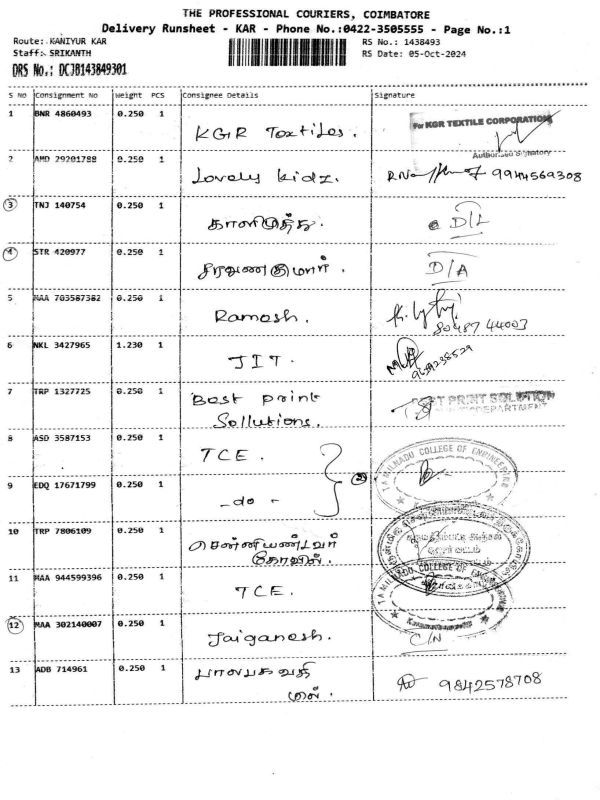 THE PROFESSIONAL COURIERS, COIMBATORE
Delivery Runsheet - KAR - Phone No.:0422-3505555 - Page No.:1
Route: KANIYUR KAR
RS No.: 1438493
Staff: SRIKANTH
RS Date: 05-Oct-2024
DRS No.: DCJB143849301
S No Consignment No Weight PCS Consignee Details Signature
1 BNR 4860493 0.250 1 KGR Textiles. For KGR TEXTILE CORPORATION
Authorised Signatory
2 AMD 29201788 0.250 1 Lovely kidz. 9944569308
3 TNJ 140754 0.250 1 காளிமுத்து D/L
4 STR 420977 0.250 1 சரவணகுமார். D/A
5 MAA 703587382 0.250 1 Ramesh. 80487 44003
6 NKL 3427965 1.230 1 JIT. 9659238529
7 TRP 1327725 0.250 1 Best print Sollutions. PRINT SOLUTION
DEPARTMENT
8 ASD 3587153 0.250 1 TCE. TAMILNADU COLLEGE OF ENGINEERING
9 EDQ 17671799 0.250 1 -do-
10 TRP 7806109 0.250 1 சென்னியண்டவர் கோவில்.
11 MAA 944599396 0.250 1 TCE. TAMILNADU COLLEGE OF ENGINEERING
12 MAA 302140007 0.250 1 Jaiganesh. C/N
13 ADB 714961 0.250 1 பாலபகவதி மில் 9842578708